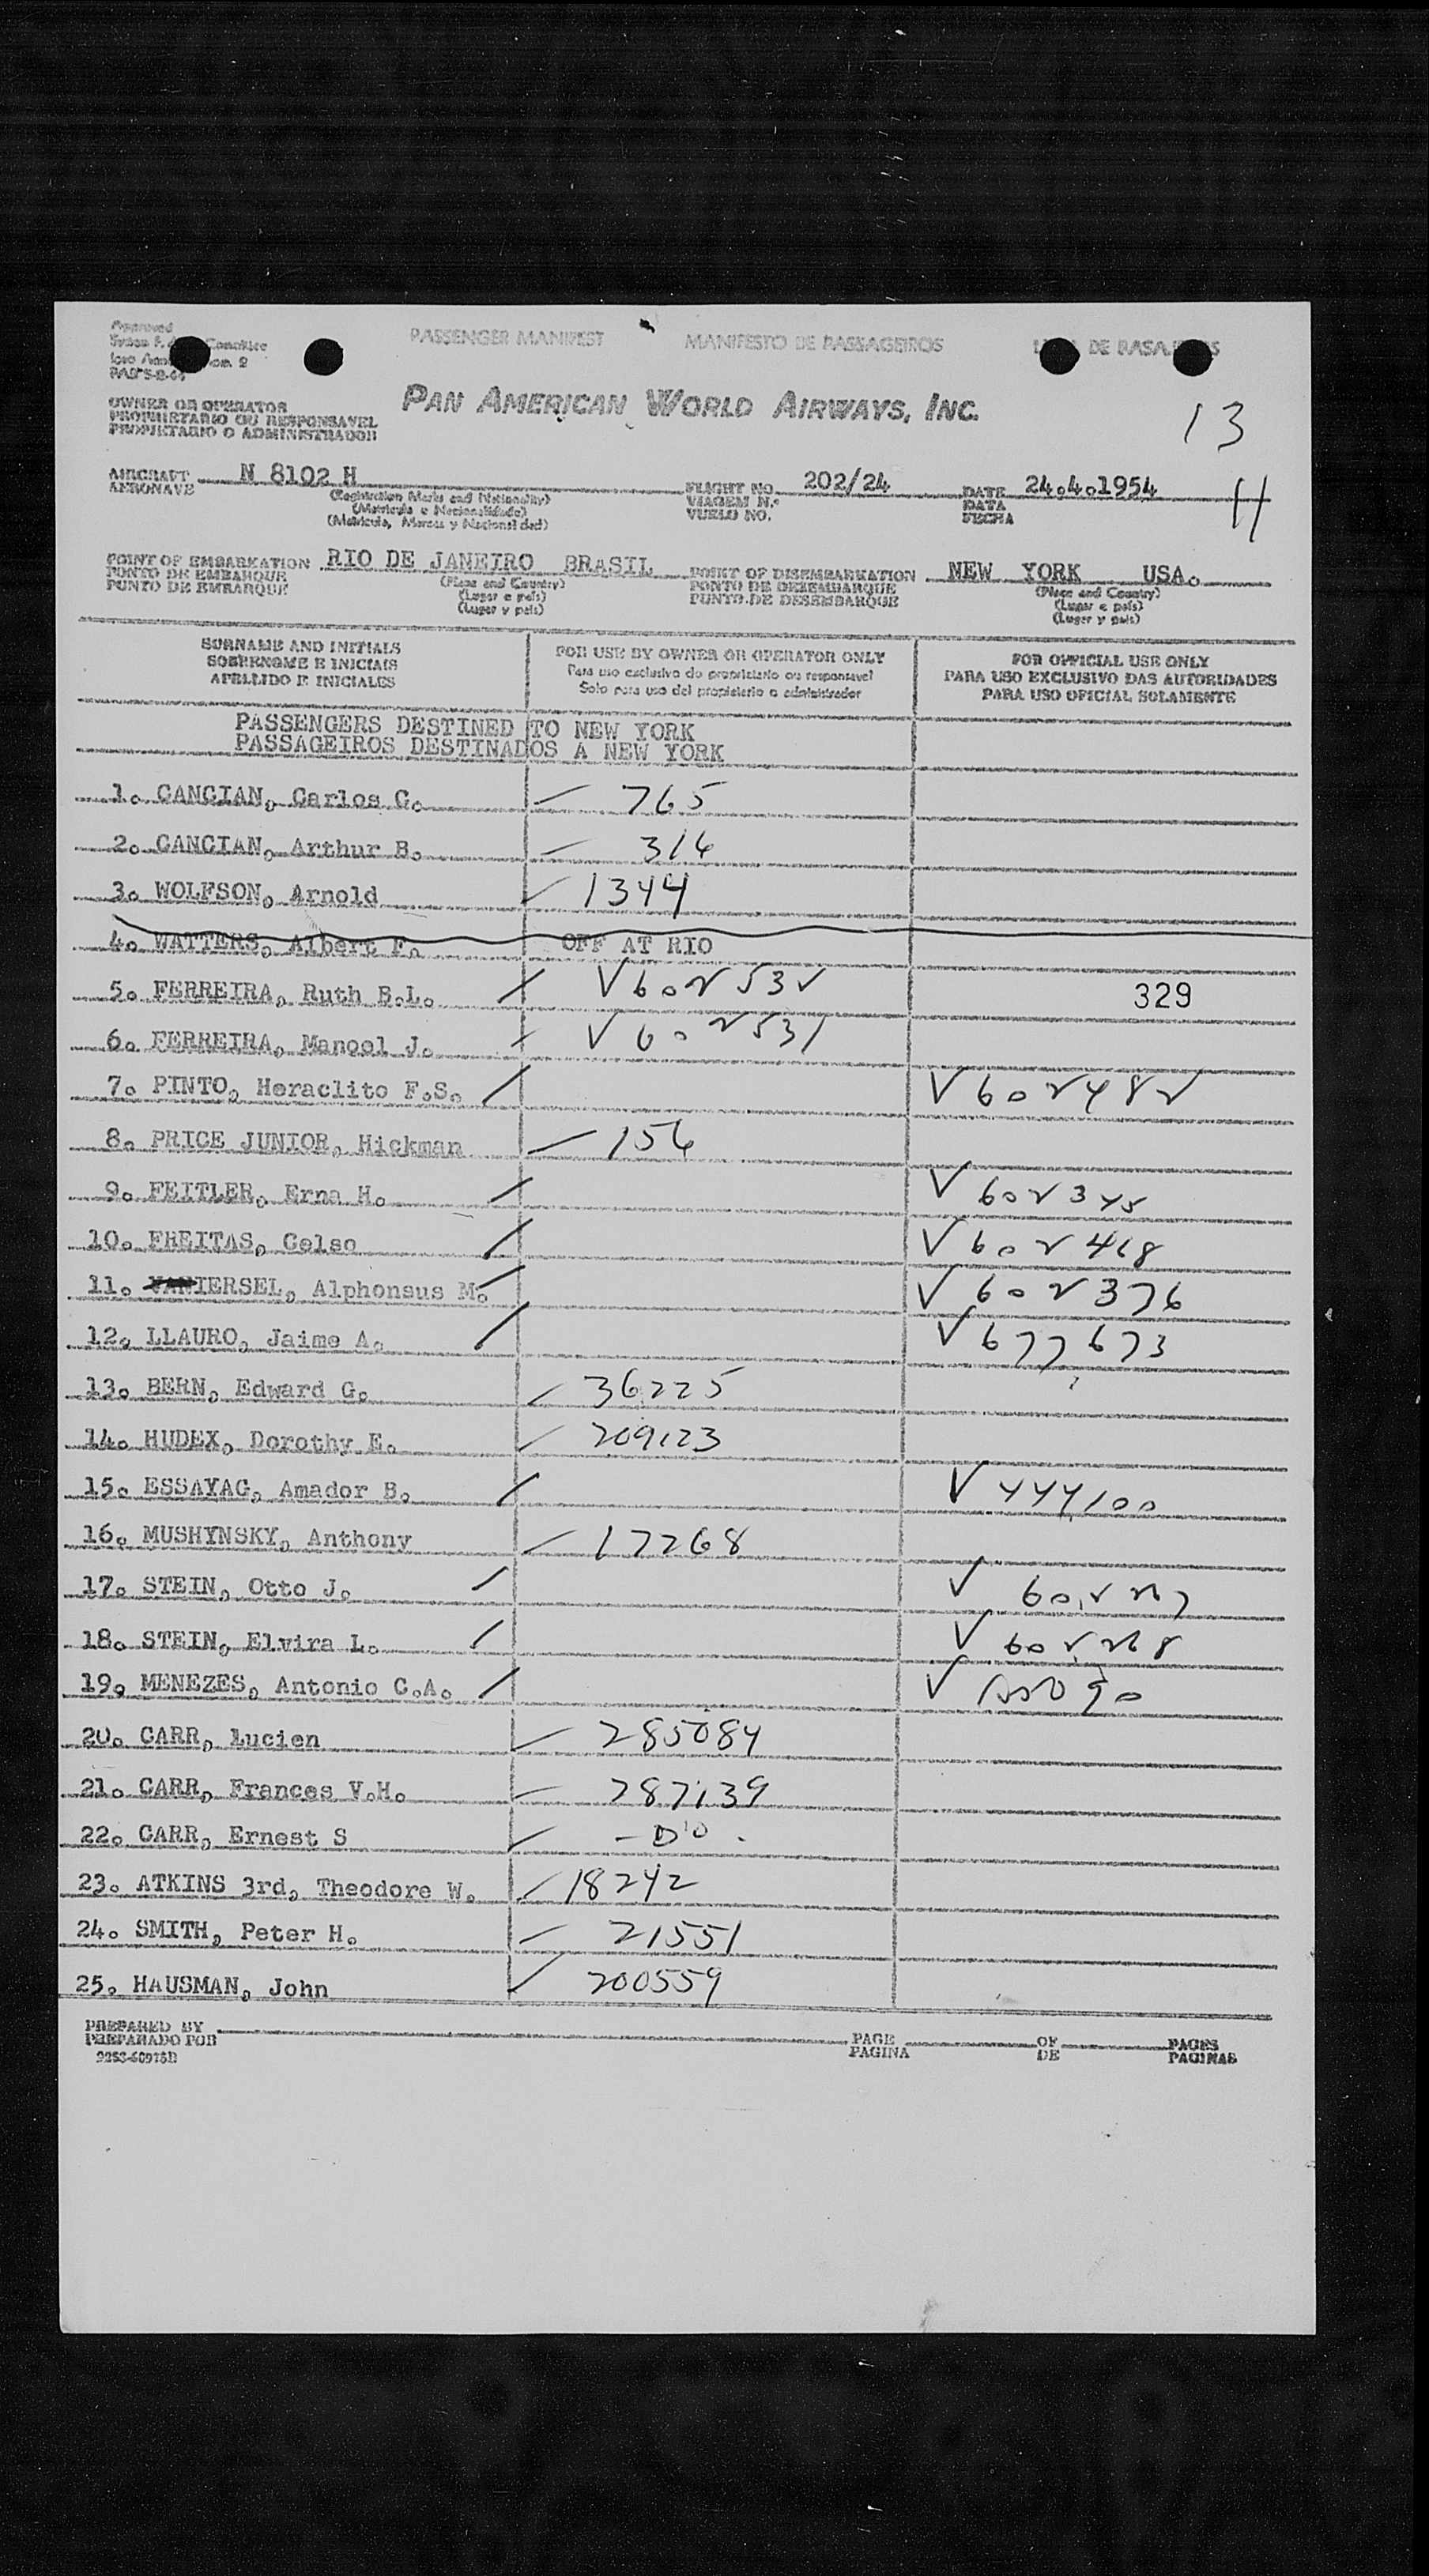 Approved
PASSENGER MANIFEST MANIFESTO DE PASSAGEIROS DE PASAJEROS
OWNER OR OPERATOR
PROPRIETARIO OU RESPONSAVEL
PROPIETARIO O ADMINISTRADOR
PAN AMERICAN WORLD AIRWAYS, INC.
13
AIRCRAFT N 8102 H FLIGHT NO. 202/24 DATE 24.4.1954
AERONAVE (Registration Marks and Nationality) VIAGEM N.º DATA H
(Matricula e Nacionalidade) VUELO NO. FECHA
(Matricula, Marcas y Nacionalidad)
POINT OF EMBARKATION RIO DE JANEIRO BRASIL POINT OF DISEMBARKATION NEW YORK USA.
PONTO DE EMBARQUE (Place and Country) PONTO DE DESEMBARQUE (Place and Country)
PUNTO DE EMBARQUE (Lugar e país) PUNTO DE DESEMBARQUE (Lugar e país)
(Lugar y país) (Lugar y país)
SURNAME AND INITIALS FOR USE BY OWNER OR OPERATOR ONLY FOR OFFICIAL USE ONLY
SOBRENOME E INICIAIS Para uso exclusivo do proprietario ou responsavel PARA USO EXCLUSIVO DAS AUTORIDADES
APELLIDO E INICIALES Solo para uso del propietario o administrador PARA USO OFICIAL SOLAMENTE
PASSENGERS DESTINED TO NEW YORK
PASSAGEIROS DESTINADOS A NEW YORK
1. CANCIAN, Carlos G. 765
2. CANCIAN, Arthur B. 316
3. WOLFSON, Arnold 1344
4. WATTERS, Albert F. OFF AT RIO
5. FERREIRA, Ruth B.L. V 602532 329
6. FERREIRA, Manoel J. V 602531
7. PINTO, Heraclito F.S. V 602482
8. PRICE JUNIOR, Hickman 156
9. FEITLER, Erna H. V 602345
10. FREITAS, Celso V 602418
11. VANIERSEL, Alphonsus M. V 602376
12. LLAURO, Jaime A. V 677673
13. BERN, Edward G. 36225
14. HUDEX, Dorothy E. 209123
15. ESSAYAG, Amador B. V 444100
16. MUSHYNSKY, Anthony 17268
17. STEIN, Otto J. V
18. STEIN, Elvira L. V 602268
19. MENEZES, Antonio C.A. V
20. CARR, Lucien 285084
21. CARR, Frances V.H. 287139
22. CARR, Ernest S - DO -
23. ATKINS 3rd, Theodore W. 18242
24. SMITH, Peter H. 21551
25. HAUSMAN, John 200559
PREPARED BY PAGE OF PAGES
PREPARADO POR PAGINA DE PAGINAS